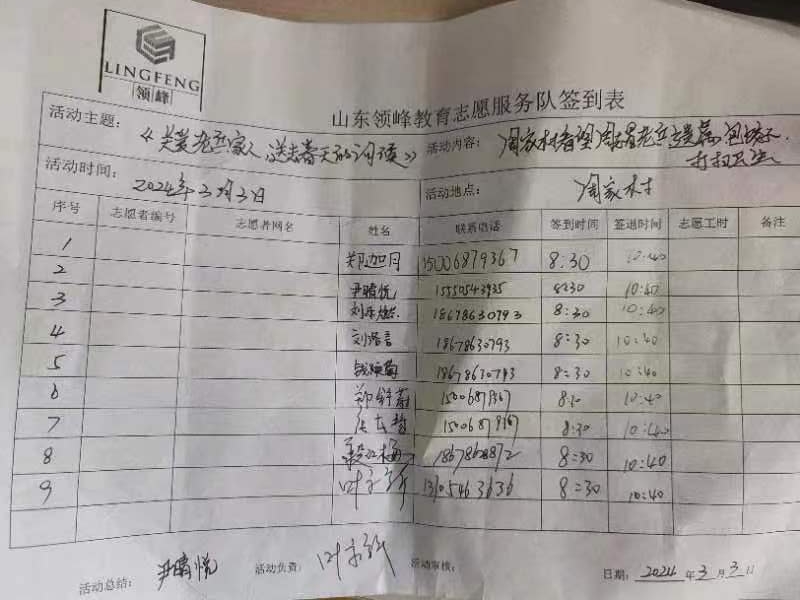 LINGFENG
领峰
山东领峰教育志愿服务队签到表
活动主题：《关爱老兵家人 送去春天的问候》 活动内容：周家村看望 老兵 包饺子
打扫卫生
活动时间：2024年3月3日 活动地点：周家村
序号 志愿者编号 志愿者网名 姓名 联系电话 签到时间 签退时间 志愿工时 备注
1
2 郑迦月 15006879367 8:30 10:40
3 尹晴悦 15550543935 8:30 10:40
18678630793 8:30 10:40
4 18678630793 8:30 10:40
5 18678630793 8:30 10:40
6 郑舒蔚 15006879367 8:30 10:40
7 15006879367 8:30 10:40
8 8:30 10:40
9 叶 13105463636 8:30 10:40
活动总结：尹晴悦 活动负责：叶 活动审核： 日期：2024年3月3日